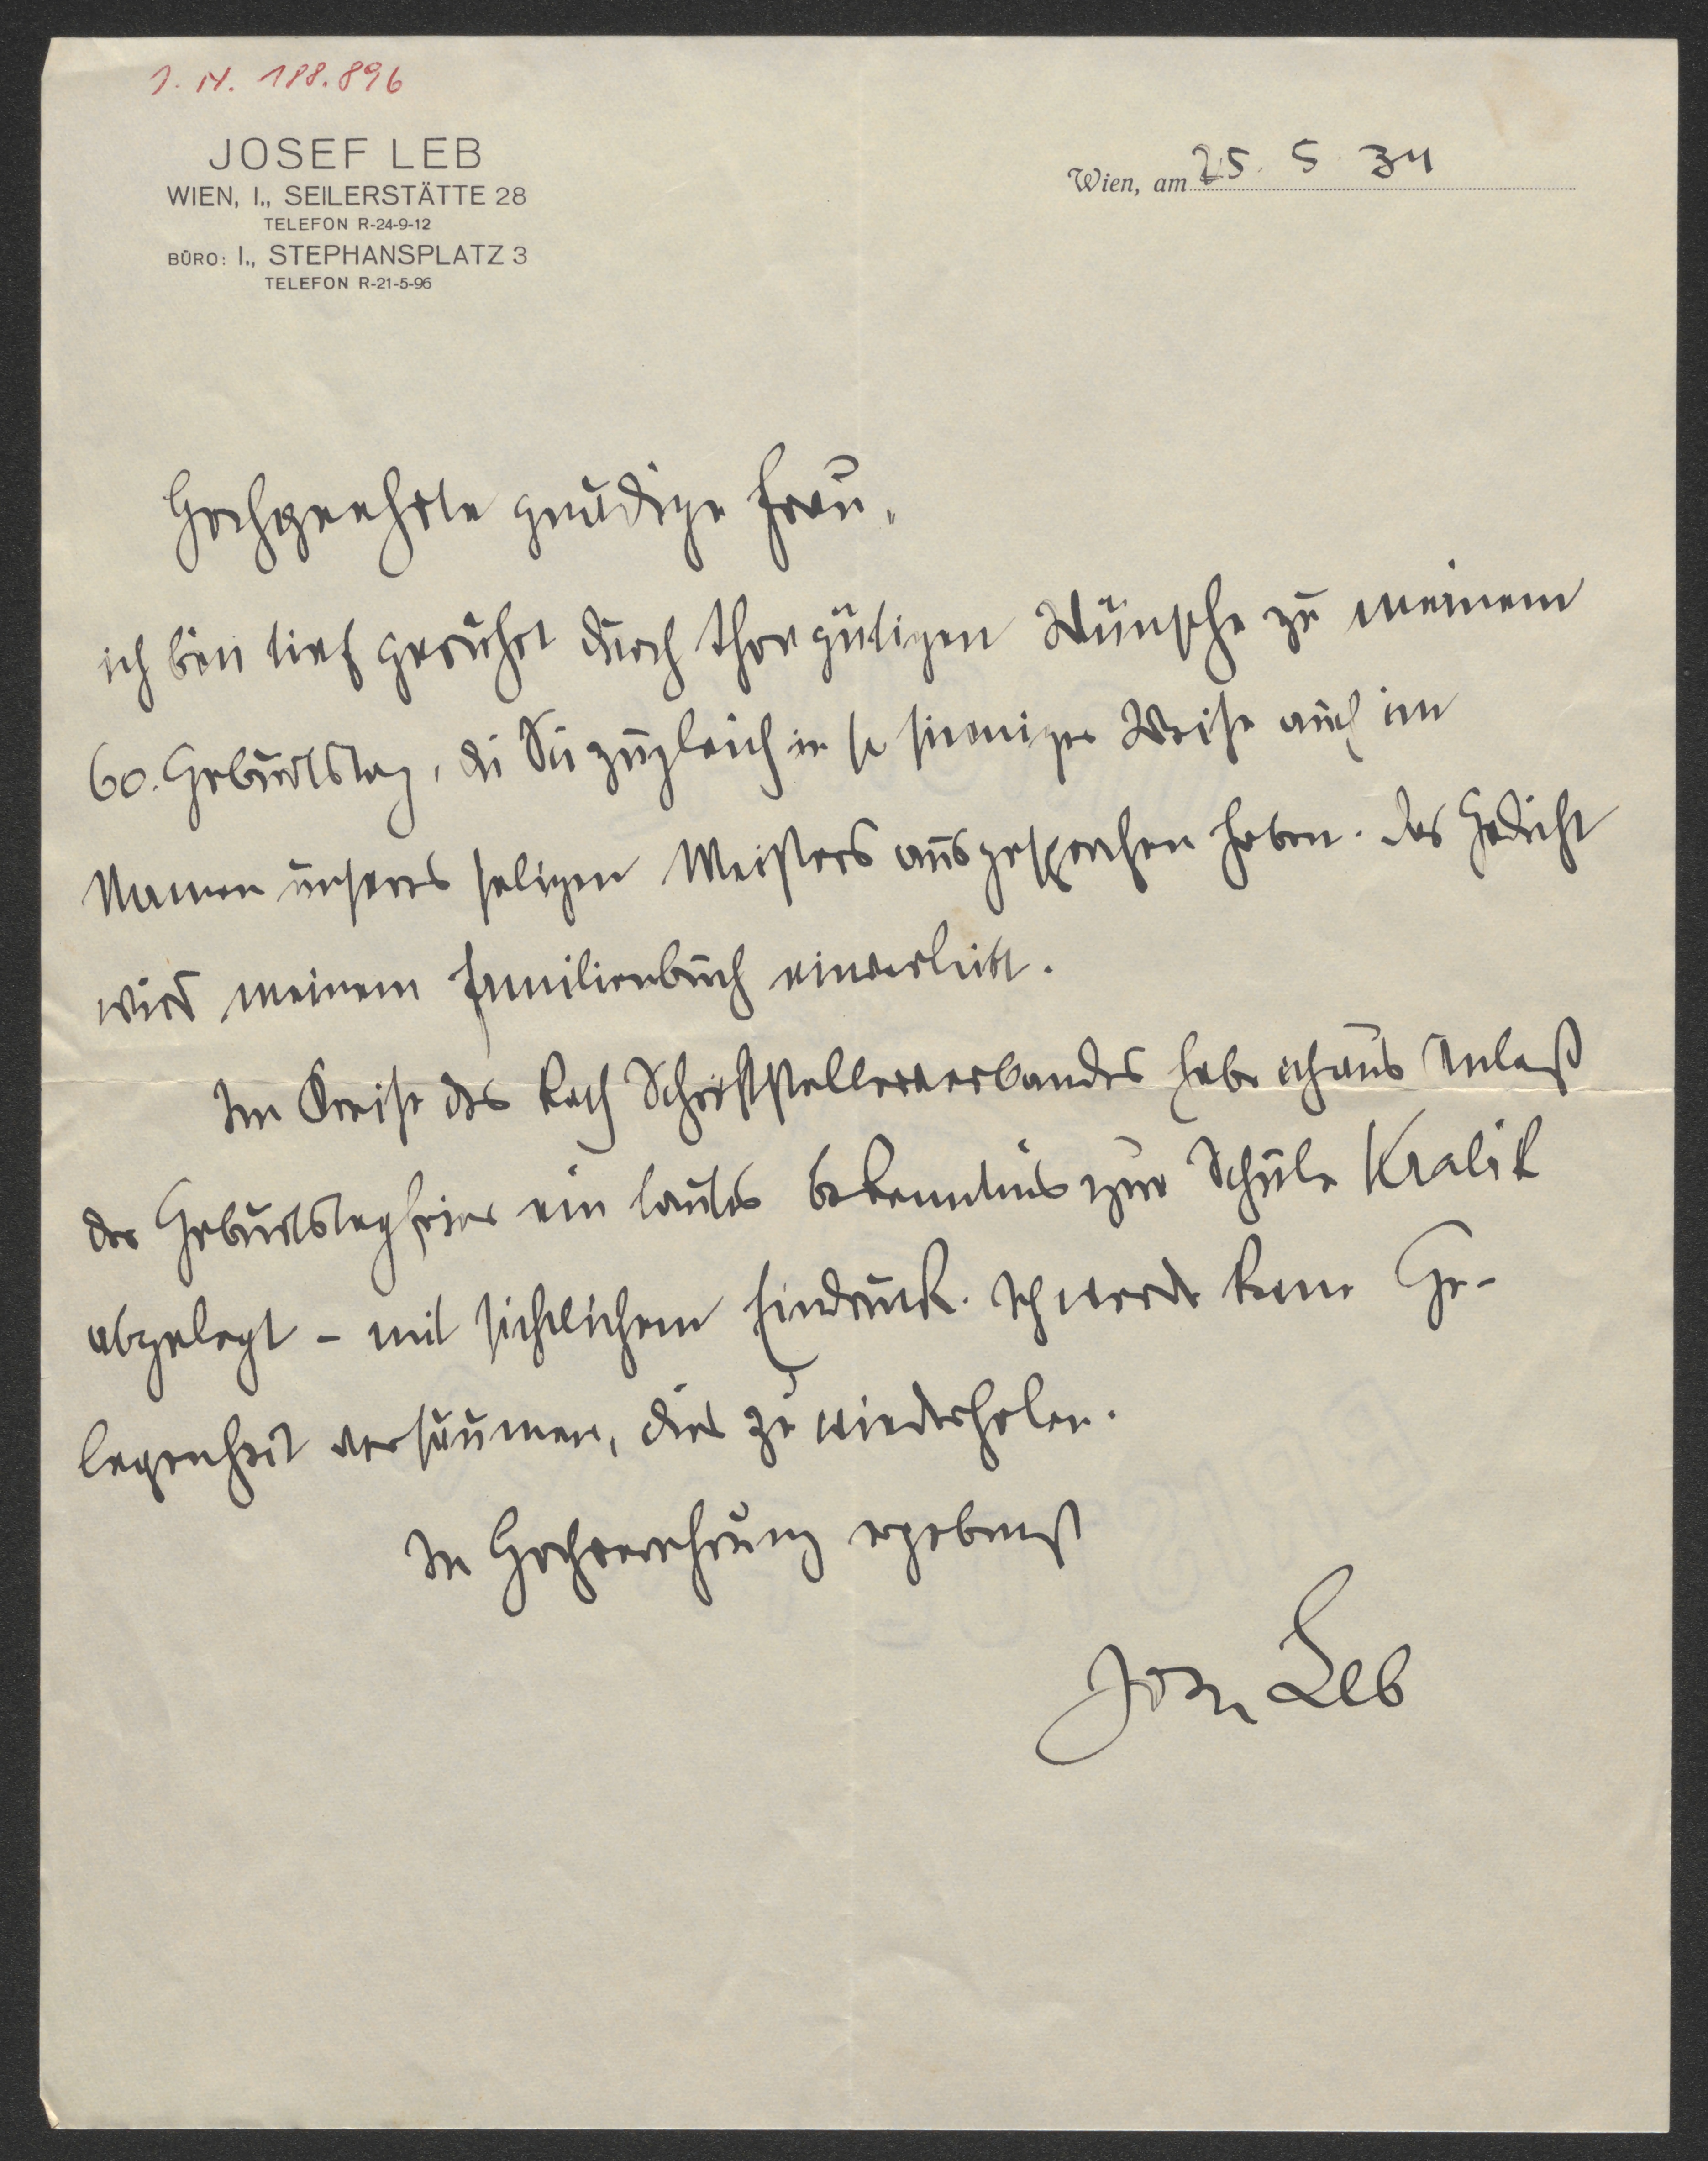 J. N. 188.896
JOSEF LEB
WIEN, I., SEILERSTÄTTE 28
TELEFON R-24-9-12
BÜRO: I., STEPHANSPLATZ 3
TELEFON R-21-5-96
Wien, am 25. 5. 34
Hochgeehrte gnädige Frau,
ich bin tief gerührt durch Ihre gütigen Wünsche zu meinem
60. Geburtstag, di Sie zugleich in so sinniger Weise auch im
Namen unseres seligen Meisters ausgesprochen haben. Das Gedicht
wird meinem Familienbuch einverleibt.
Im Kreise des kath Schriftstellerverbandes habe ich aus Anlaß
der Geburtstagfeier ein lautes Bekenntnis zur Schule Kralik
abgelegt - mit sichtlichem Eindruck. Ich werde keine Ge-
legenheit versäumen, dies zu wiederholen.
In Hochverehrung ergebenst
Josef Leb